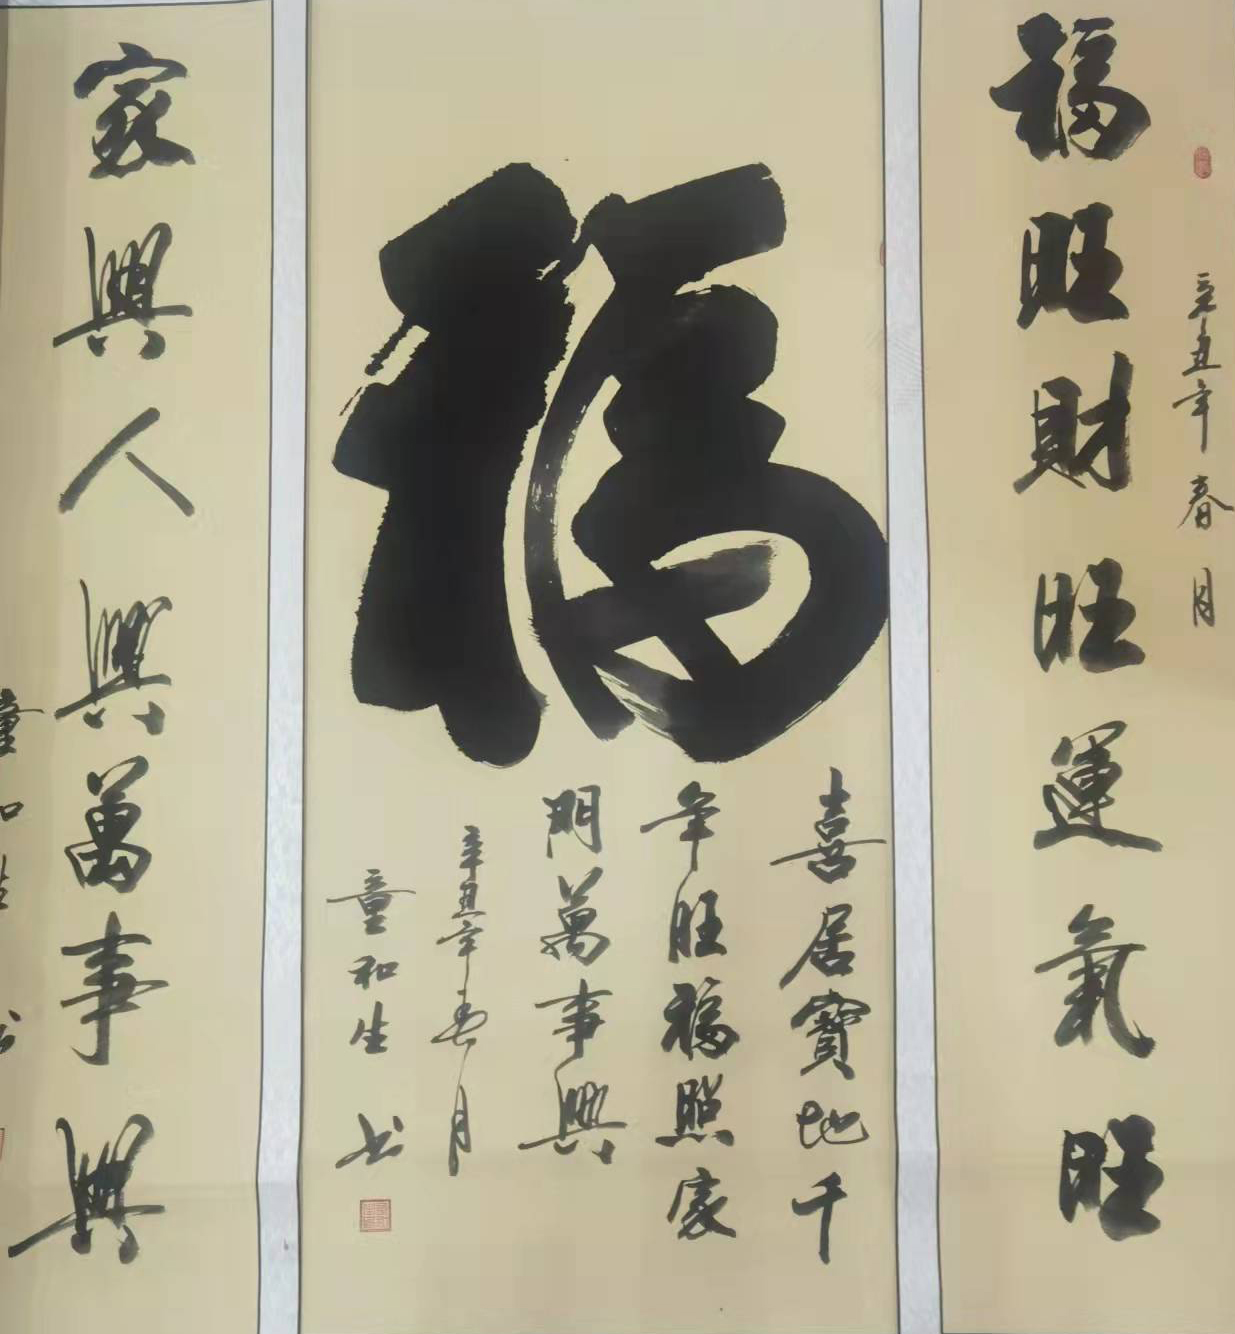 辛丑年春月
福旺財旺運氣旺
福
喜居寶地千
年旺福照家
門萬事興
辛丑年春月
童和生书
家興人興萬事興
童和生书